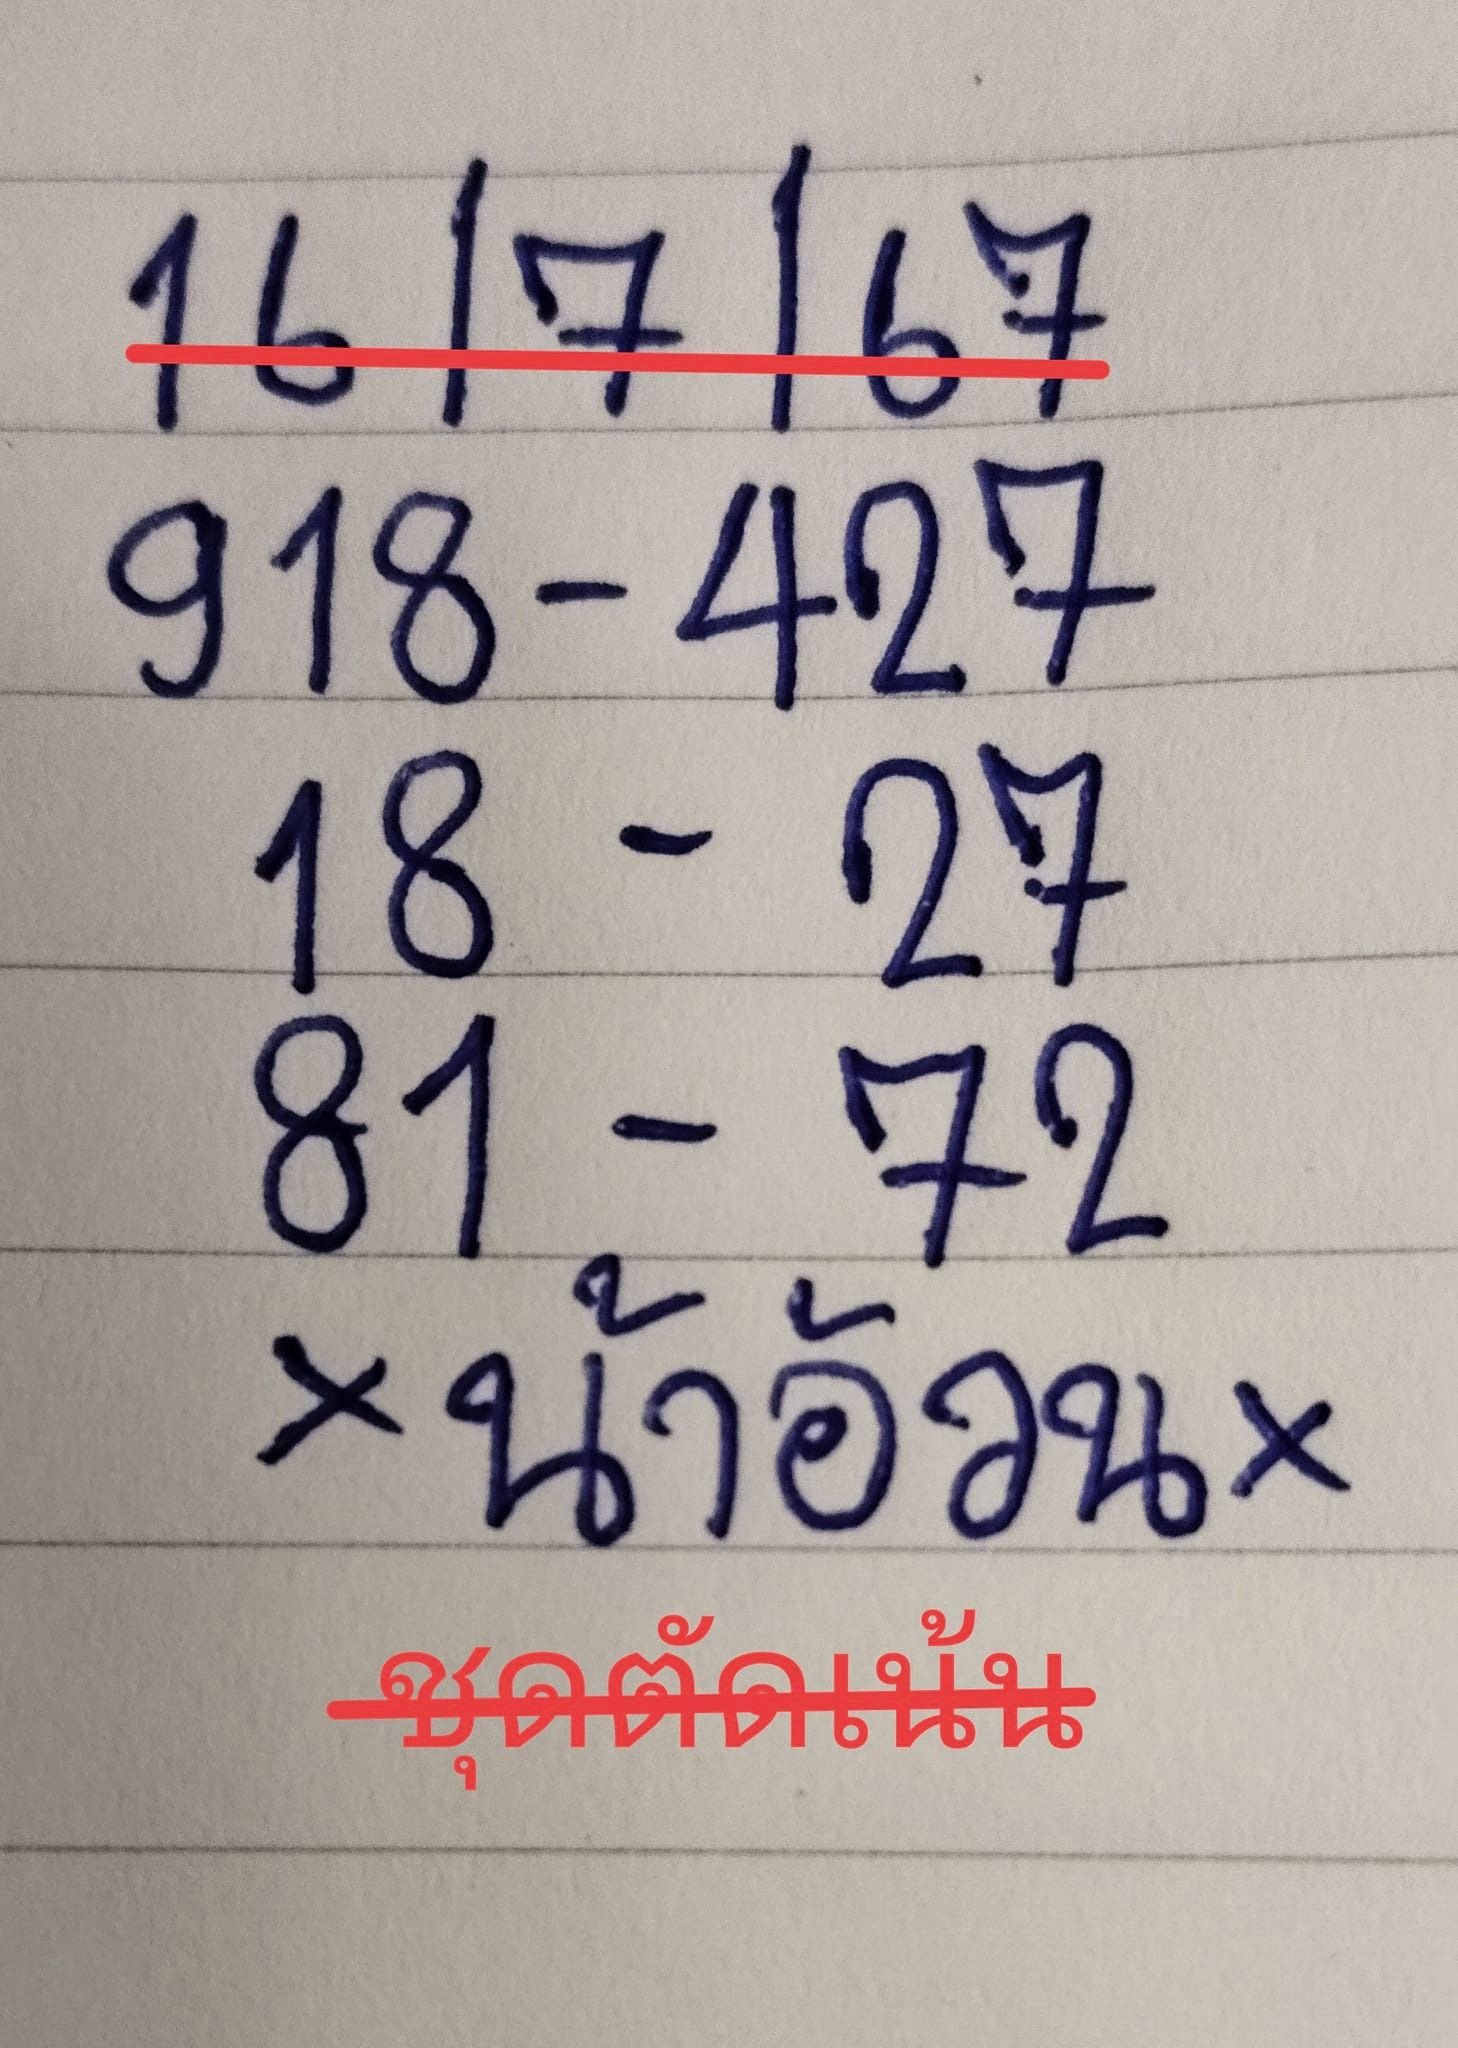 16/7/67
918-427
18 - 27
81 - 72
×น้าอ้วน×
ชุดตัดเน้น